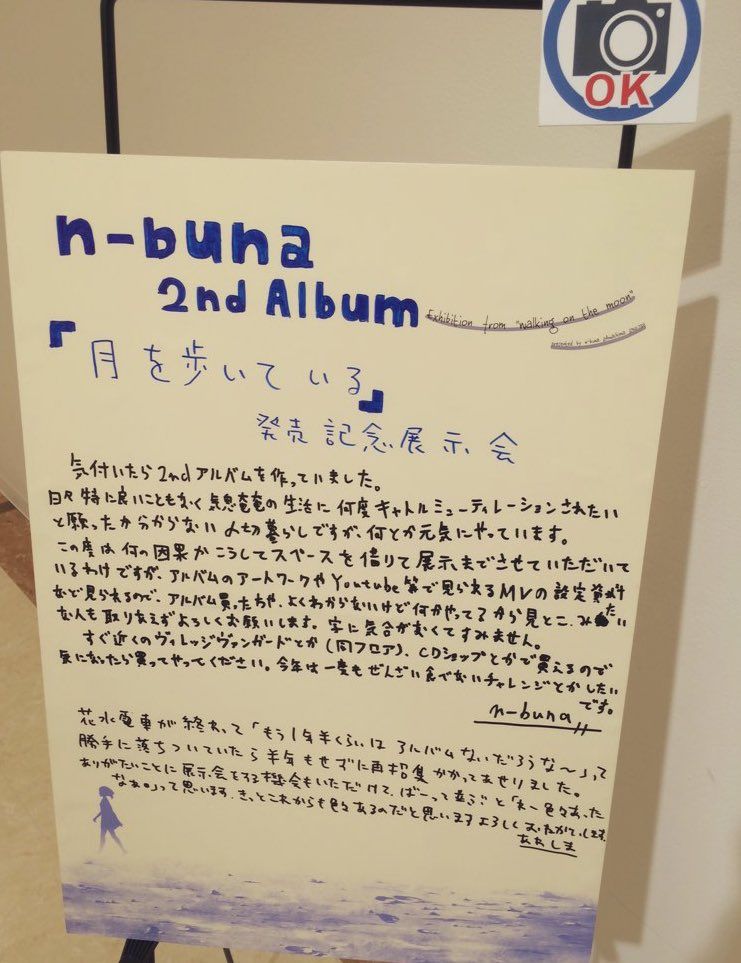 OK
n-buna
2nd Album
Exhibition from "walking on the moon"
『月を歩いている』
発売記念展示会
気付いたら2ndアルバムを作っていました。
日々特に良いこともなく気息奄奄の生活に何度キャトルミューティレーションされたい
と願ったか分からない〆切暮らしですが、何とか元気にやっています。
この度は何の因果かこうしてスペースを借りて展示までさせていただいて
いるわけですが、アルバムのアートワークやYoutube等で見られるMVの設定資料
なで見られるので、アルバム買ったちや、よくわからないけど何かやってるから見とこ、みたい
な人も取りあえずよろしくお願いします。字に気合がなくてすみません。
すぐ近くのヴィレッジヴァンガードとか(同フロア)、CDショップとかで買えるので
気になったら買ってやってください。今年は一度もぜんざい食べないチャレンジとかしたい
です。
n-buna
花水電車が終わって「もう1年半くらいはアルバムないだろうな〜」って
勝手に落ちついていたら半年もせずに再招集かかってあせりました。
ありがたいことに展示会をする機会もいただけて、ばーって並ぶと「わー色々あった
なぁ。」って思います。きっとこれからも色々あるのだと思いますよろしくおねがいします。
あわしま